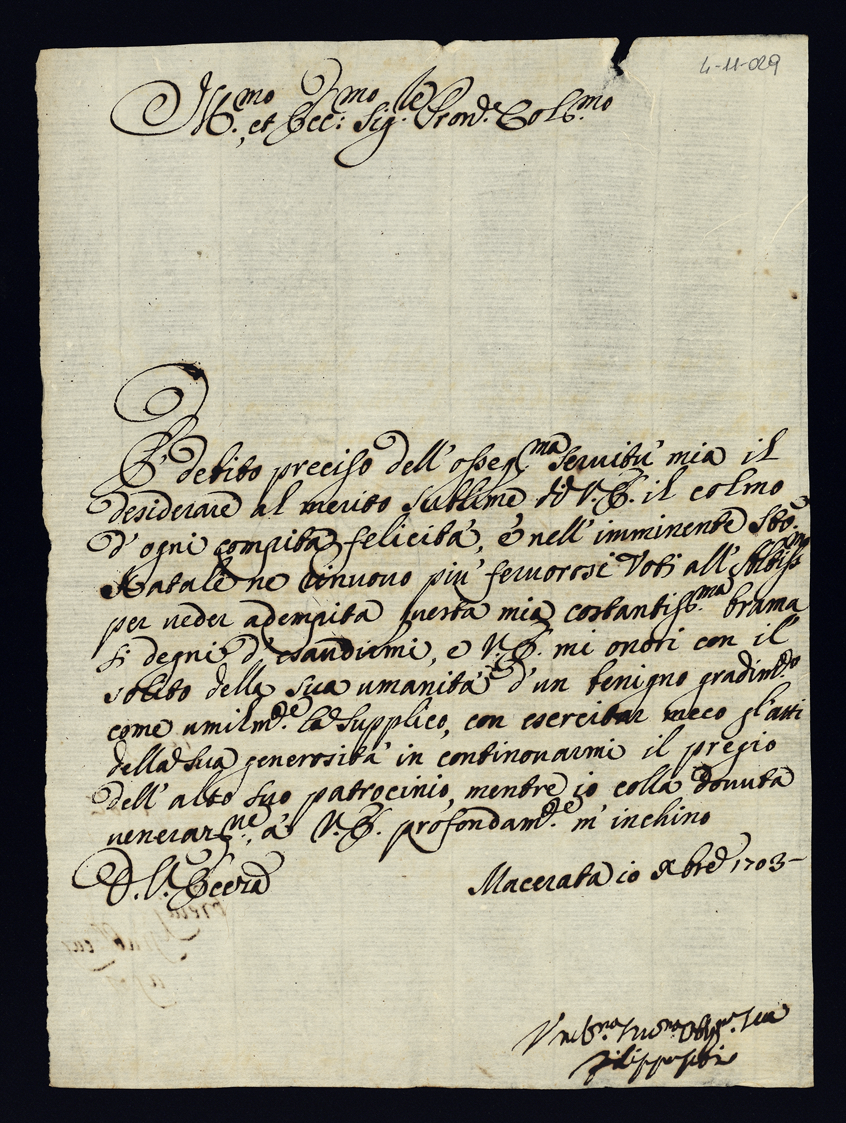 4-11-029
Ill.mo et Ecc.mo Sig.re Pron.e Col.mo
È debito preciso dell' osseq.ma servitù mia il
desiderare al merito sublime di V.E. il colmo
d' ogni compita felicità, e nell' imminente S.to
Natale ne rinuovo più fervorosi voti all' Altiss.mo
per veder adempita questa mia costantiss.ma brama
si degni d' esaudirmi, e V.E. mi onori con il
solito della sua umanità d' un benigno gradim.to
come umilm.te la supplico, con esercitar meco gl' atti
della sua generosità in continovarmi il pregio
dell' alto suo patrocinio, mentre io colla dovuta
veneraz.ne à V.E. profondam.te m' inchino
D. V. Eccza
Macerata 10 Xbre 1703